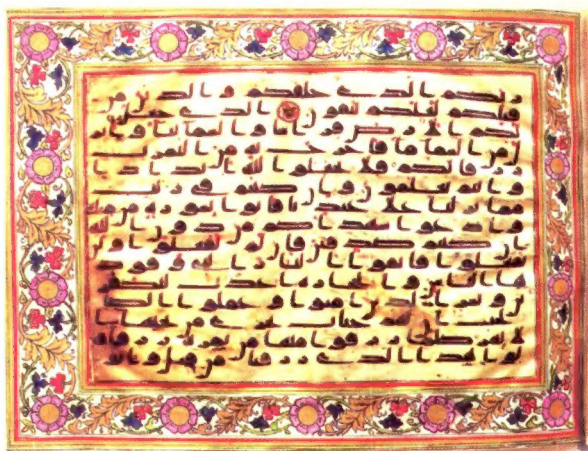 ربكم الذي خلقكم والذين من
قبلكم لعلكم تتقون الذي جعل
لكم الارض فرشا والسما بنا وانز
ل من السما ما فاخرج به من الثمرت
رزقا لكم فلا تجعلوا لله اندادا
وانتم تعلمون وان كنتم في ريب
مما نزلنا على عبدنا فاتوا بسورة من مثله
وادعوا شهداكم من دون الله
ان كنتم صدقين فان لم تفعلوا ولن
تفعلوا فاتقوا النار التي وقود
ها الناس والحجارة اعدت للكفر
ين وبشر الذين امنوا وعملوا الص
لحت ان لهم جنت تجري من تحتها ا
لانهر كلما رزقوا منها من ثمرة رزقا قا
لوا هذا الذي رزقنا من قبل واتوا